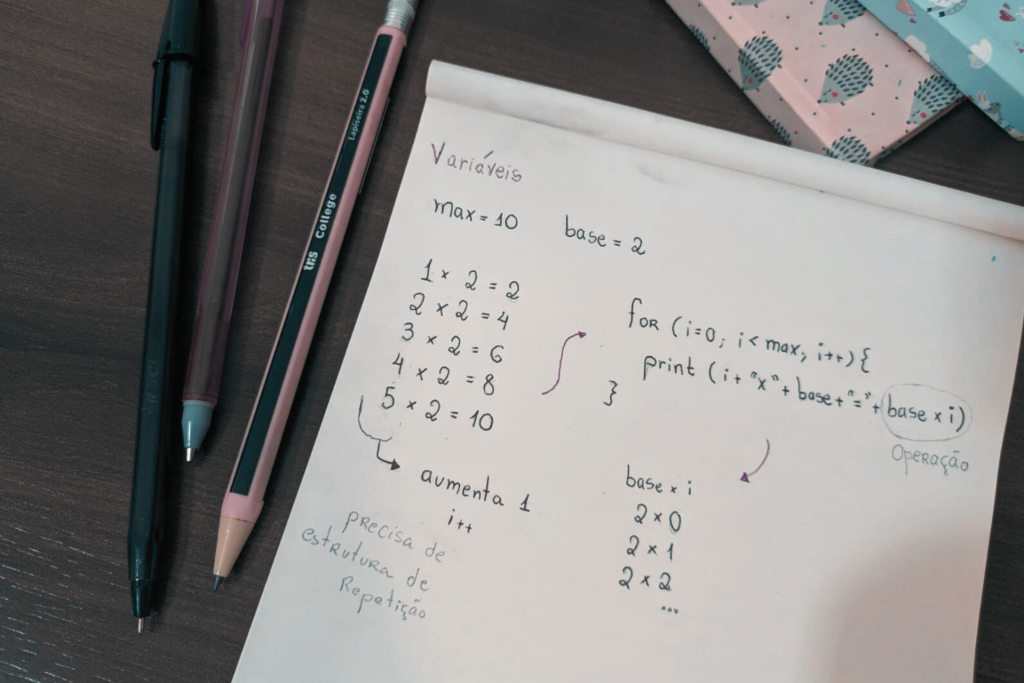 Variáveis
max = 10 base = 2
1 x 2 = 2
2 x 2 = 4
3 x 2 = 6
4 x 2 = 8
5 x 2 = 10
aumenta 1
i++
precisa de
estrutura de
Repetição
for (i=0; i< max; i++) {
print (i+ "x"+ base+"="+ base x i)
}
Operação
base x i
2 x 0
2 x 1
2 x 2
...
tris College Lapiseira 2.0